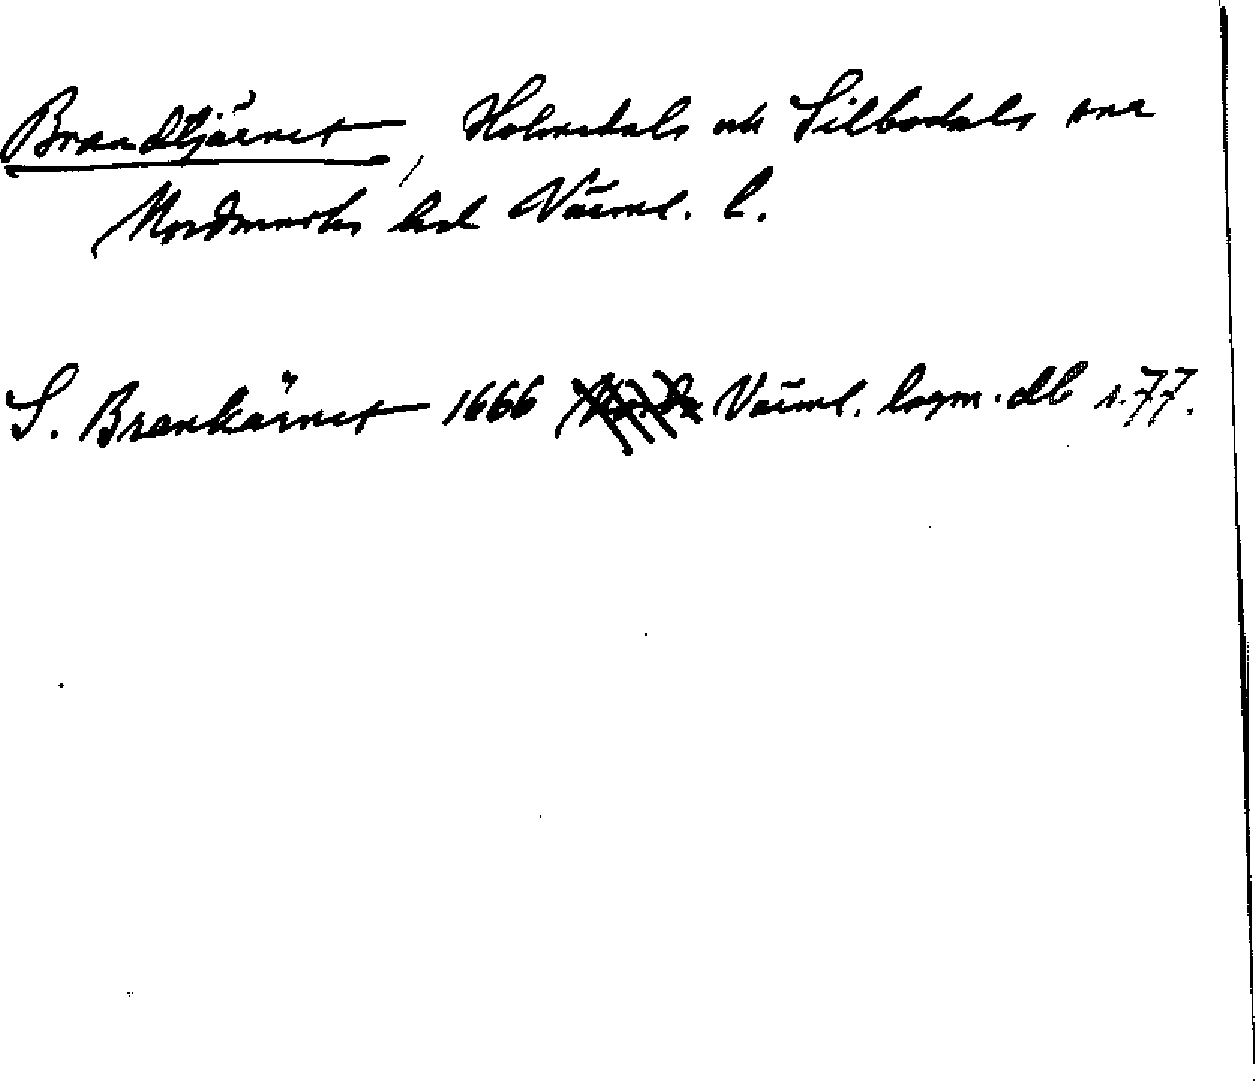 Brandtjärnet, Holmedals och Silbodals snr
Nordmarks hd Värml. l.
S. Brankärnet 1666 Värml. lagm.db s. 77.